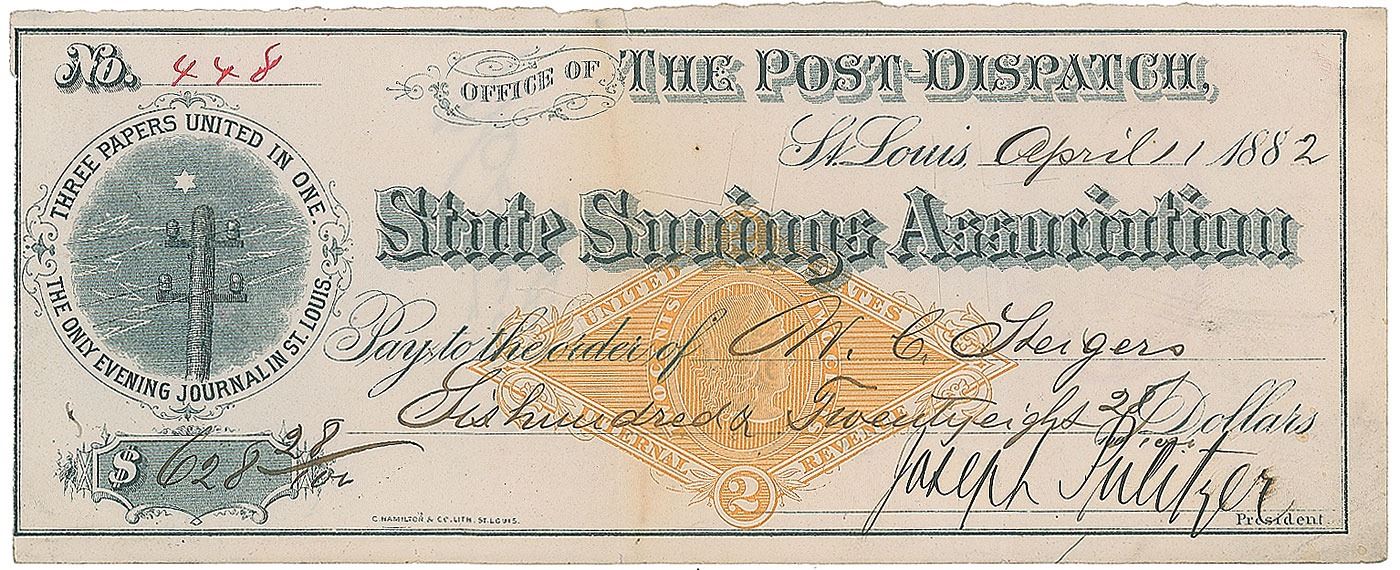 No. 448
OFFICE OF THE POST-DISPATCH,
St. Louis, April 1 1882
THREE PAPERS UNITED IN ONE.
THE ONLY EVENING JOURNAL IN ST. LOUIS.
State Savings Association
UNITED STATES
Pay to the order of W. C. Steigers
Six hundred & Twenty eight 28 Dollars
INTERNAL REVENUE
2
$ 628 28
Joseph Pulitzer
President.
C. HAMILTON & CO. LITH. ST. LOUIS.